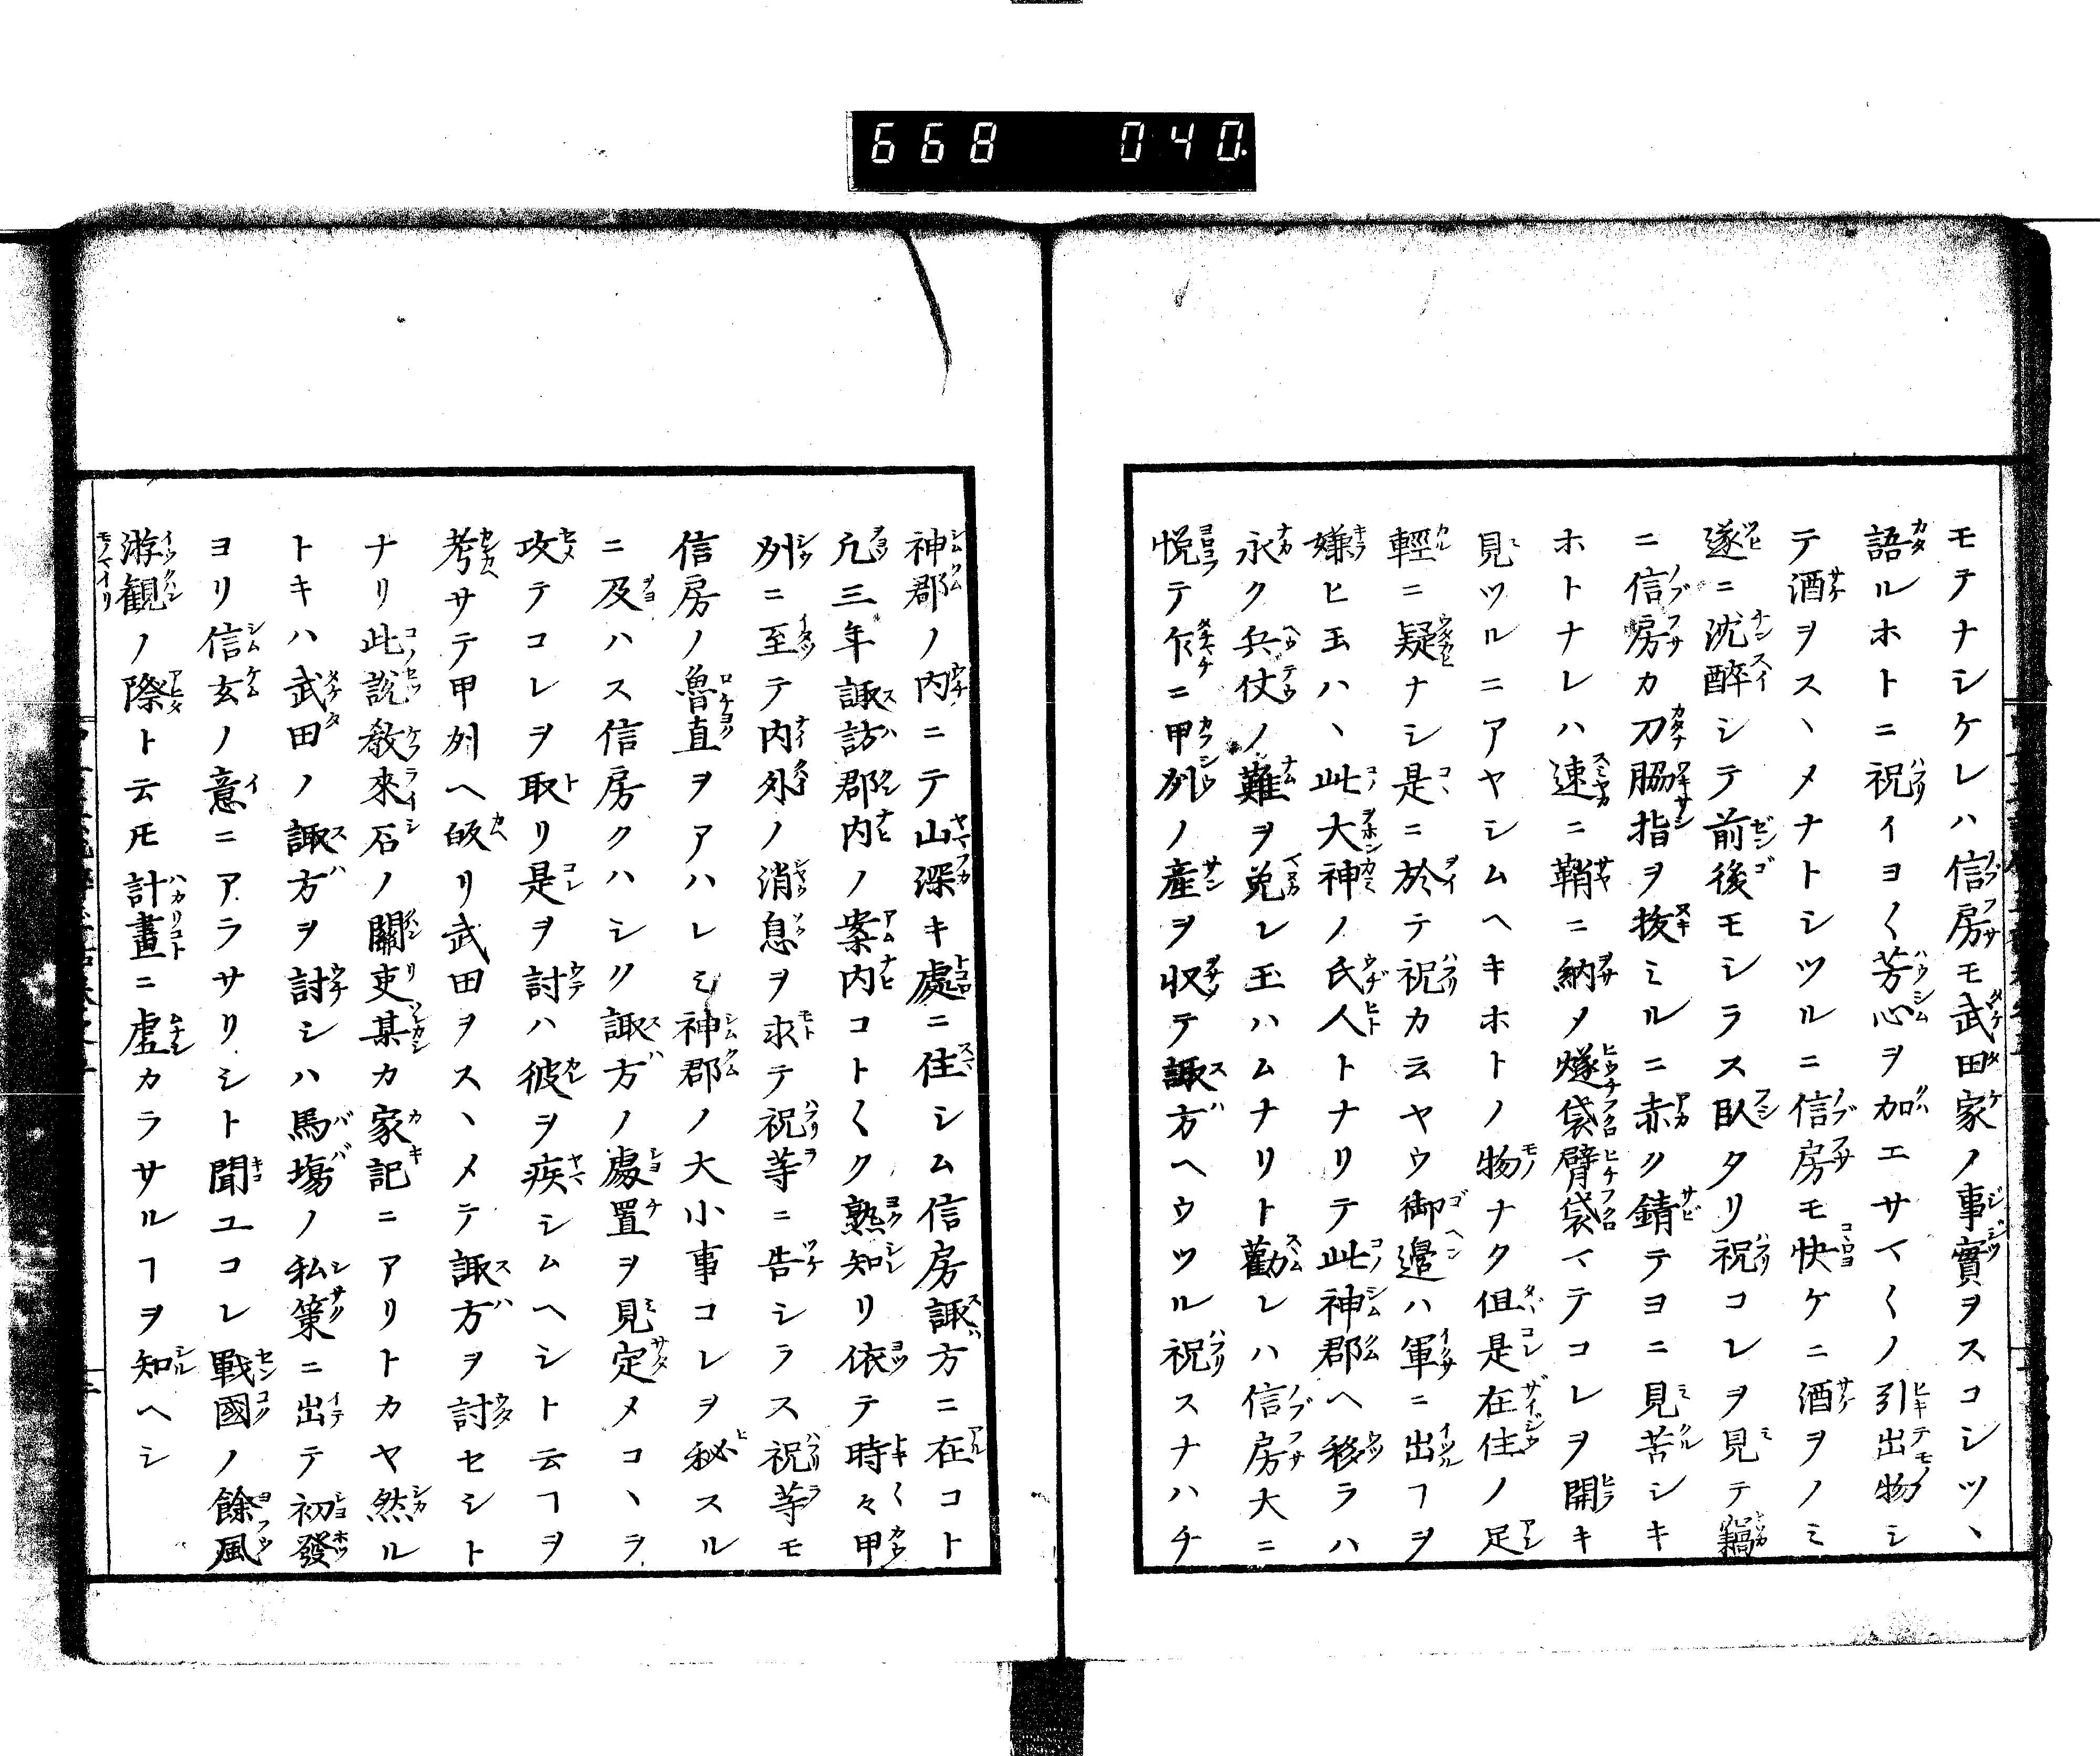 668 040
モテナシケレハ信房モ武田家ノ事實ヲスコシツヽ
語ルホトニ祝イヨ〱芳心ヲ加エサマ〱ノ引出物シ
テ酒ヲスヽメナトシツルニ信房モ快ケニ酒ヲノミ
遂ニ沈醉シテ前後モシラス臥タリ祝コレヲ見テ竊
ニ信房カ刀脇指ヲ抜ミルニ赤ク錆テヨニ見苦シキ
ホトナレハ速ニ鞘ニ納メ燧袋臂袋マテコレヲ開キ
見ツルニアヤシムヘキホトノ物ナク但是在住ノ足
輕ニ疑ナシ是ニ於テ祝カ云ヤウ御邉ハ軍ニ出ヿヲ
嫌ヒ玉ハヽ此大神ノ氏人トナリテ此神郡ヘ移ラハ
永ク兵仗ノ難ヲ免レ玉ハムナリト勸レハ信房大ニ
悦テ乍ニ甲州ノ産ヲ収テ諏方ヘウツル祝スナハチ
神郡ノ内ニテ山深キ處ニ住シム信房諏方ニ在コト
凢三年諏訪郡内ノ案内コト〱ク熟知リ依テ時々甲
州ニ至テ内外ノ消息ヲ求テ祝等ニ告シラス祝等モ
信房ノ魯直ヲアハレミ神郡ノ大小事コレヲ秘スル
ニ及ハス信房クハシク諏方ノ處置ヲ見定メコヽラ
攻テコレヲ取リ是ヲ討ハ彼ヲ疾シムヘシト云ヿヲ
考サテ甲州ヘ皈リ武田ヲスヽメテ諏方ヲ討セシト
ナリ此説教來石ノ關吏某カ家記ニアリトカヤ然ル
トキハ武田ノ諏方ヲ討シハ馬塲ノ私策ニ出テ初發
ヨリ信玄ノ意ニアラサリシト聞ユコレ戰國ノ餘風
游観ノ際ト云𪜈計畫ニ虚カラサルヿヲ知ヘシ